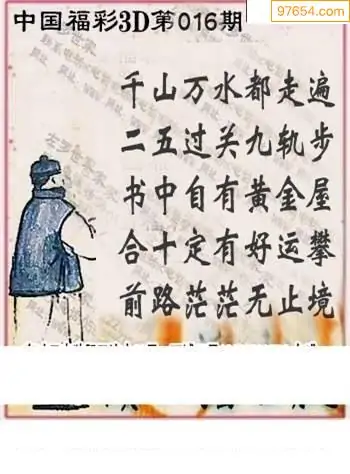 97654.com
中国福彩3D第016期
千山万水都走遍
二五过关九轨步
书中自有黄金屋
合十定有好运攀
前路茫茫无止境